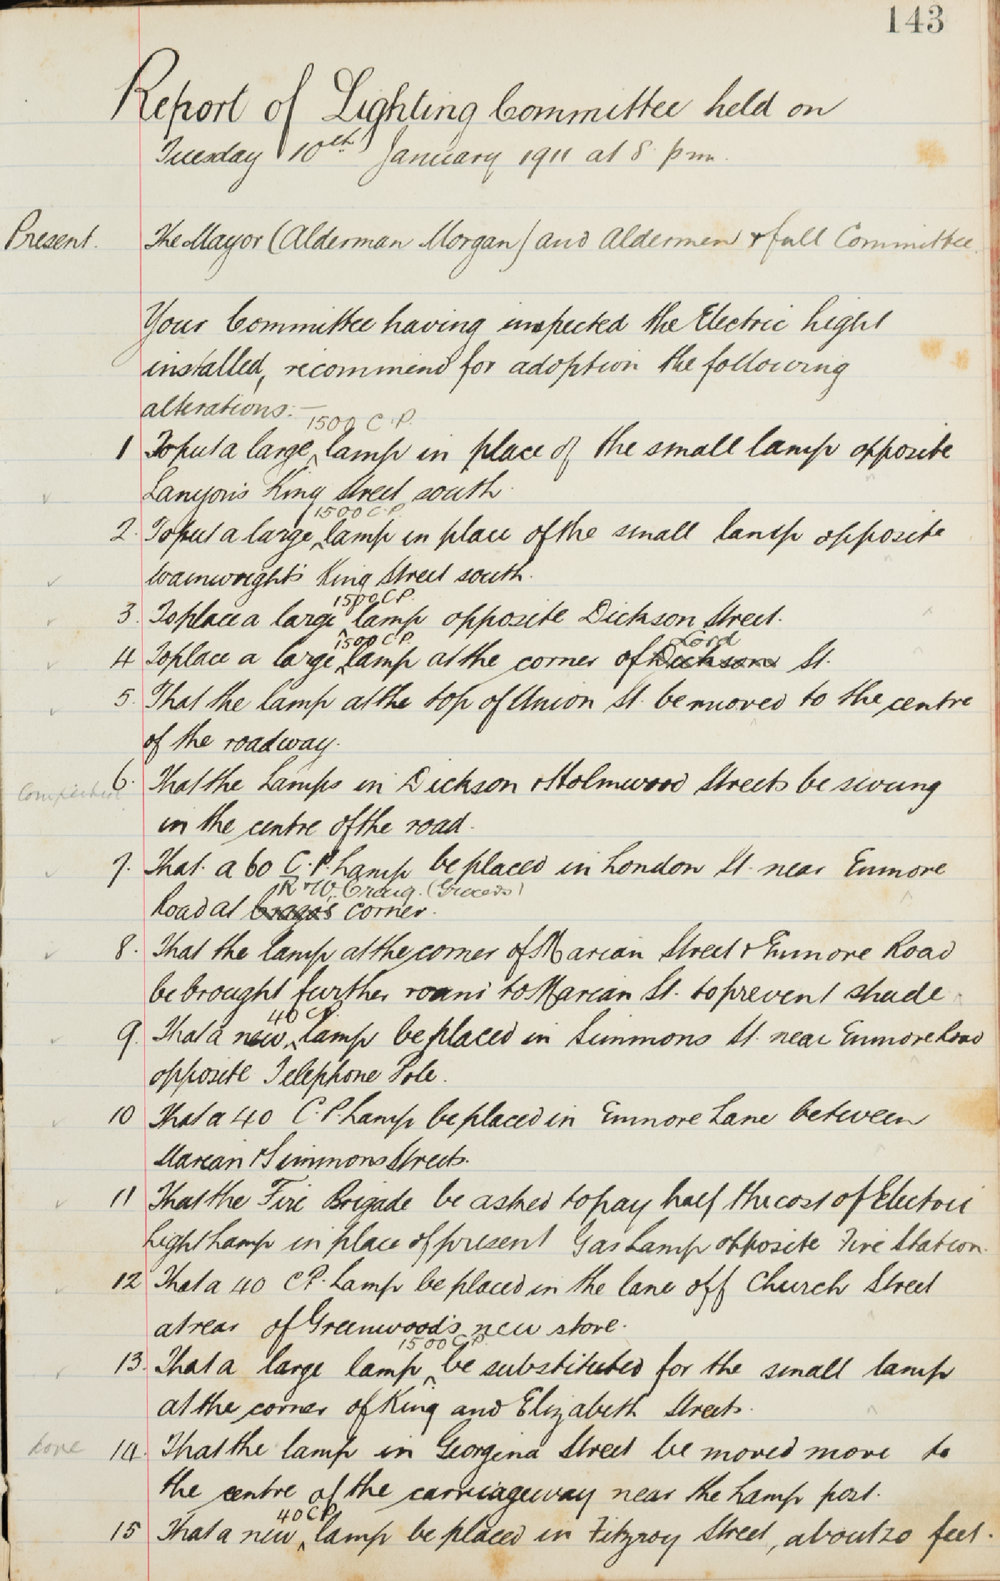 143
Report of Lighting Committee held on
Tuesday 10th January 1911 at 8 pm.
Present. The Mayor (Alderman Morgan) and Aldermen & full Committee
Your Committee having inspected the Electric Light
installed, recommend for adoption the following
alterations:—
1500 C.P.
1 To put a large lamp in place of the small lamp opposite
Lanyon's King Street south.
1500 C.P.
2. To put a large lamp in place of the small lamp opposite
Wainwright's King Street south.
1500 C.P.
3. To place a large lamp opposite Dickson Street.
1500 C.P. Lord
4 To place a large lamp at the corner of Dickson St.
5. That the lamp at the top of Union St. be moved to the centre
of the roadway.
Completed 6. That the Lamps in Dickson & Holmwood Streets be swung
in the centre of the road.
7. That a 60 C.P. Lamp be placed in London St. near Enmore
R & W. Craig. (Grocers)
Road at Craig's corner.
8. That the lamp at the corner of Marian Street & Enmore Road
be brought further round to Marian St. to prevent shade.
40 C.P.
9. That a new lamp be placed in Simmons St. near Enmore Road
opposite Telephone Pole.
10 That a 40 C.P. Lamp be placed in Enmore Lane between
Marian & Simmons Streets.
11 That the Fire Brigade be asked to pay half the cost of Electric
Light Lamp in place of present Gas Lamp opposite Fire Station.
12 That a 40 C.P. Lamp be placed in the lane off Church Street
at rear of Greenwood's new store.
1500 C.P.
13. That a large lamp be substituted for the small lamp
at the corner of King and Elizabeth Streets.
Done 14. That the lamp in Georgina Street be moved more to
the centre of the carriageway near the Lamp post.
40 C.P.
15 That a new lamp be placed in Fitzroy Street, about 20 feet.